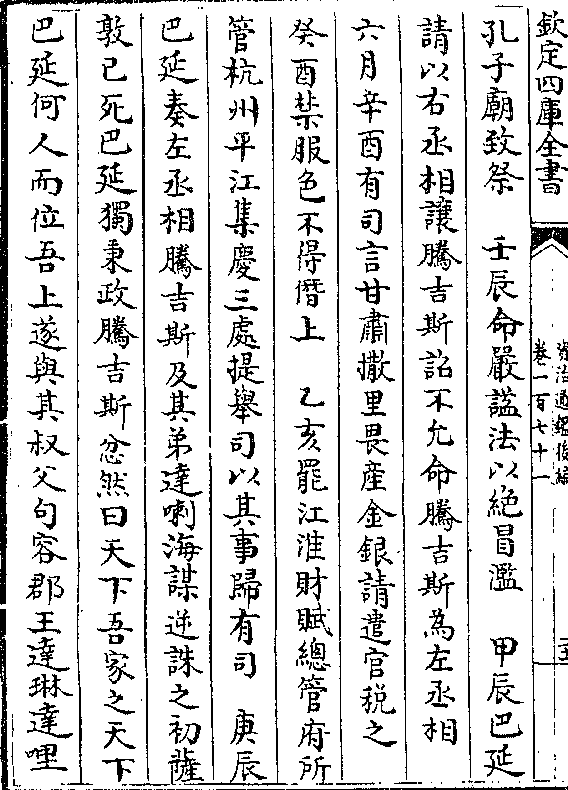 欽定四庫全書
資治通鑑後編
卷一百七十一
孔子廟致祭　壬辰命嚴諡法以絶冒濫　甲辰巴延
請以右丞相讓騰吉斯詔不允命騰吉斯為左丞相
六月辛酉有司言甘肅撒里畏産金銀請遣官税之
癸酉禁服色不得僭上　乙亥罷江淮財賦總管府所
管杭州平江集慶三處提舉司以其事歸有司　庚辰
巴延奏左丞相騰吉斯及其弟達喇海謀逆誅之初薩
敦已死巴延獨秉政騰吉斯忿然曰天下吾家之天下
巴延何人而位吾上遂與其叔父句容郡王達琳達哩